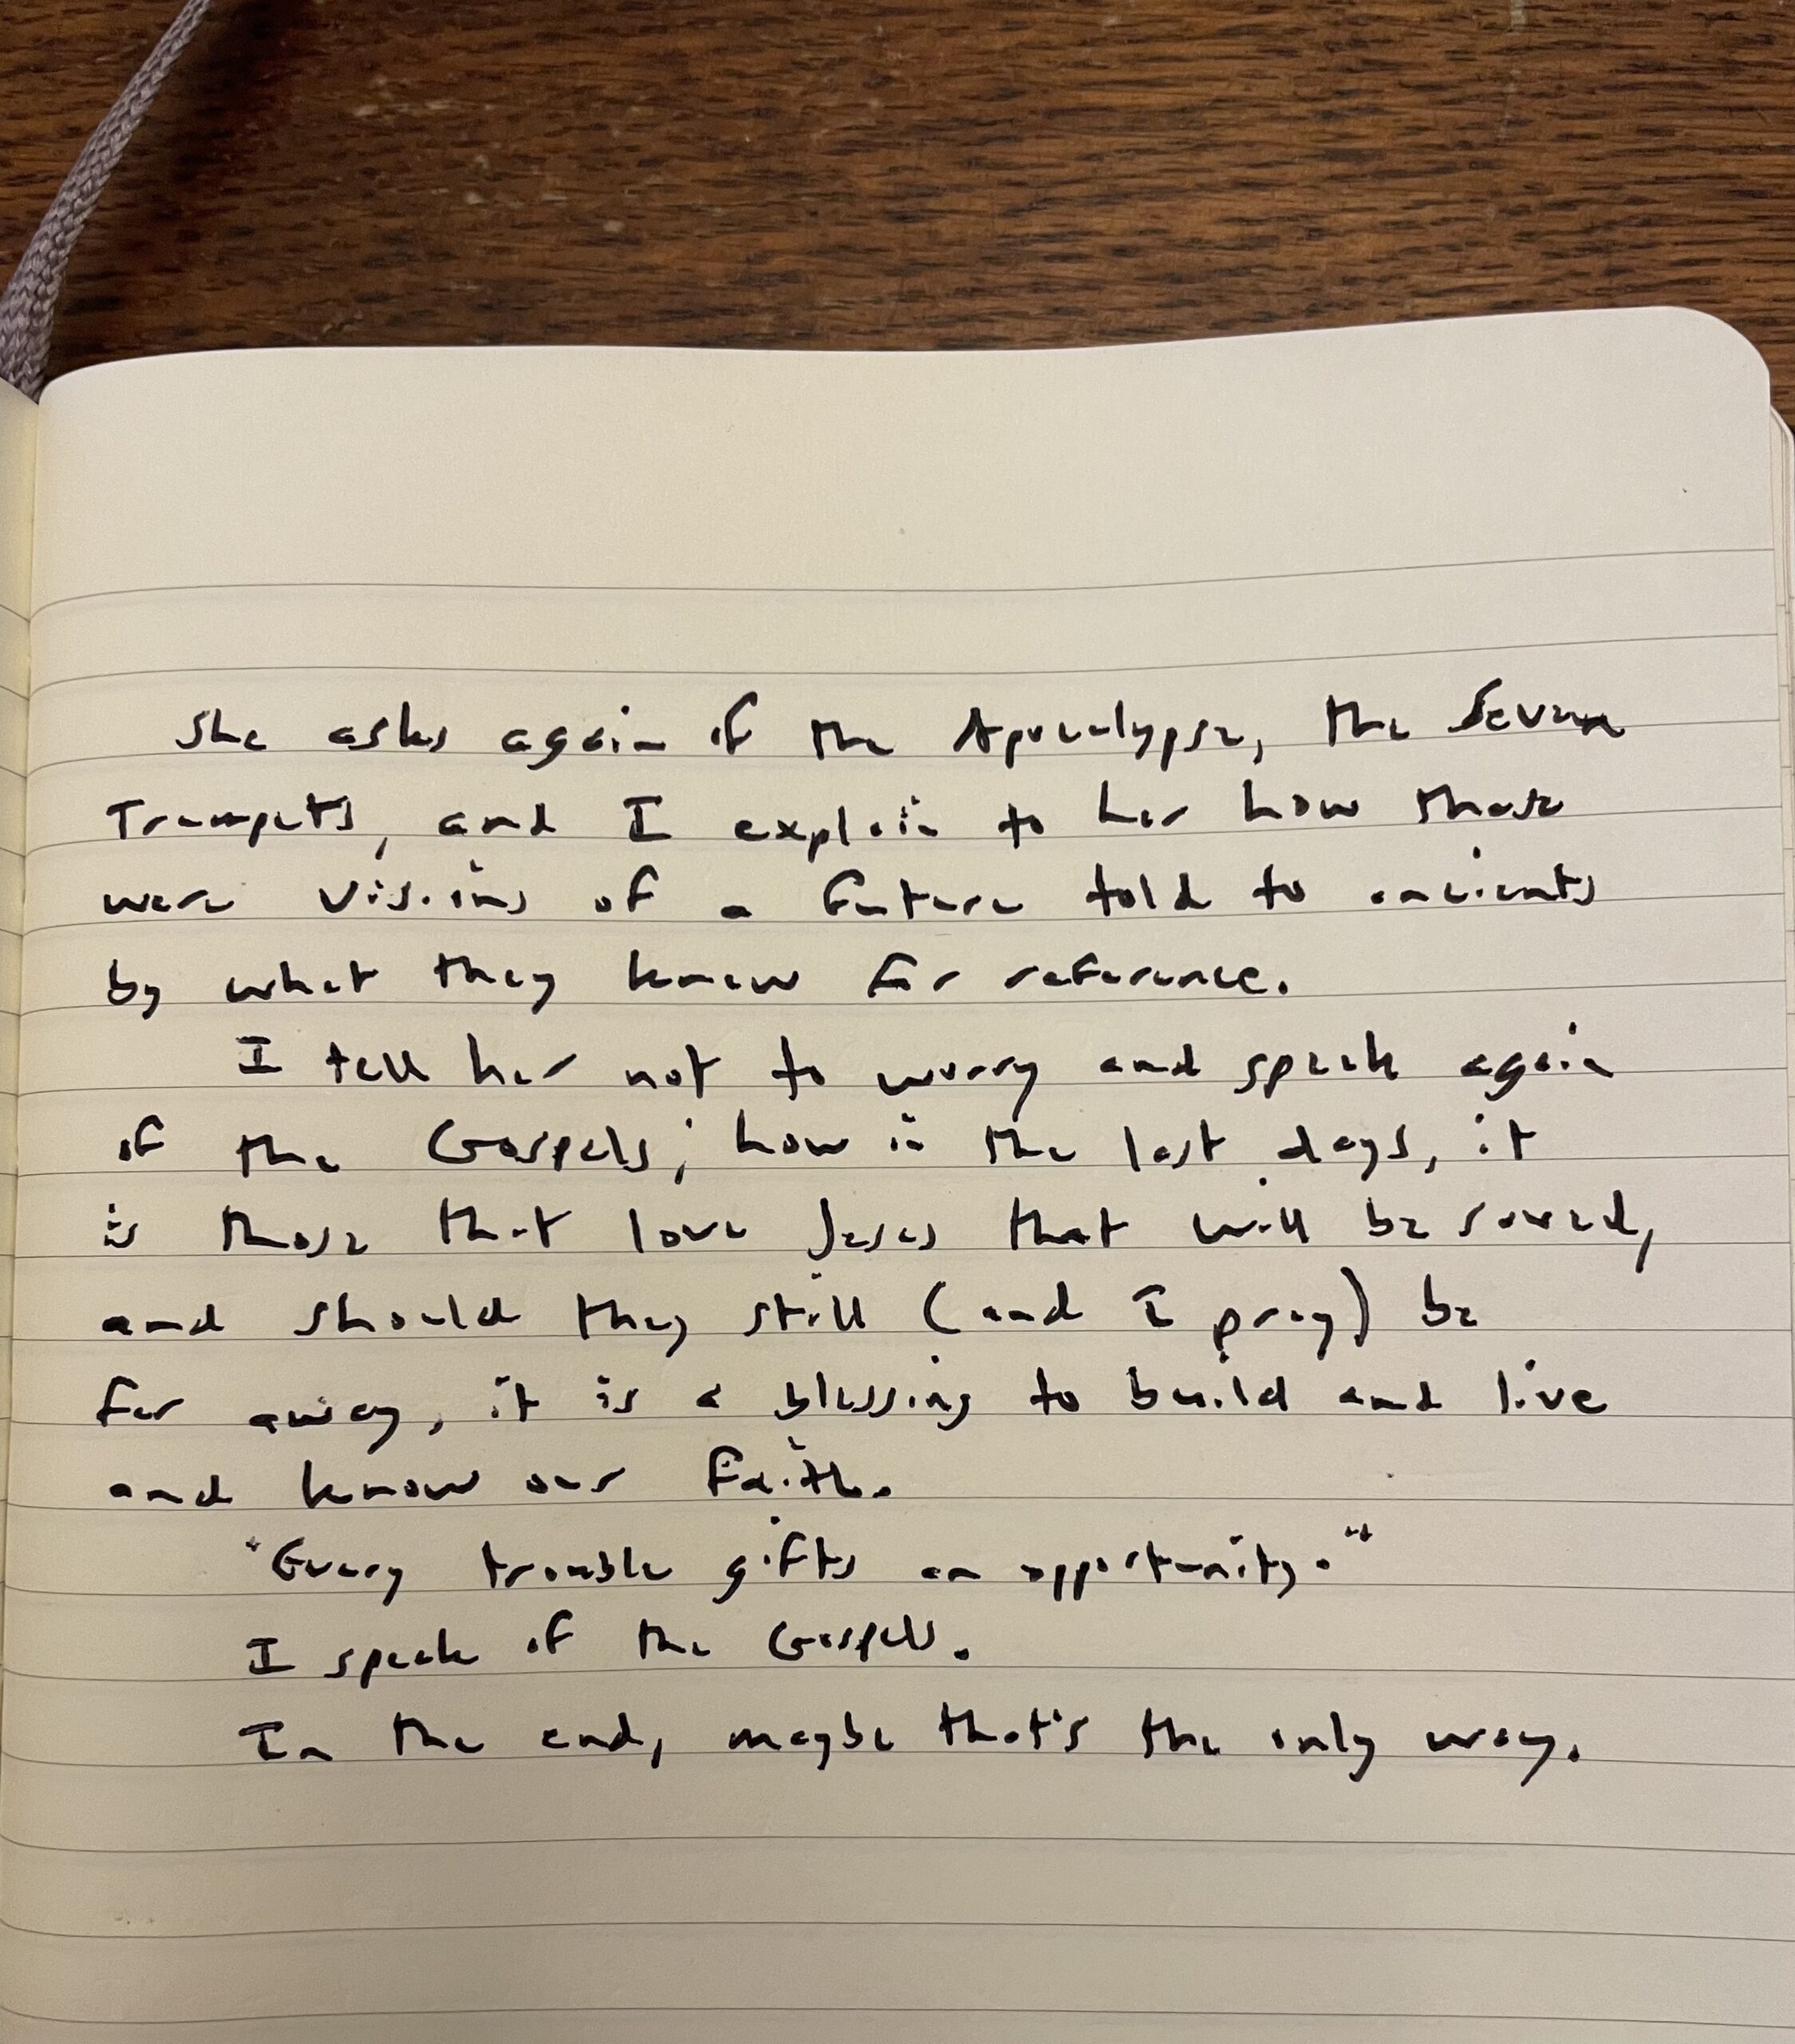 She asks again of the Apocalypse, the Seven
Trumpets, and I explain to her how these
were visions of a future told to ancients
by what they knew for reference.
I tell her not to worry and speak again
of the Gospels; how in the last days, it
is those that love Jesus that will be saved,
and should they still (and I pray) be
far away, it is a blessing to build and live
and know our Faith.
"Every trouble gifts an opportunity."
I speak of the Gospels.
In the end, maybe that's the only way.